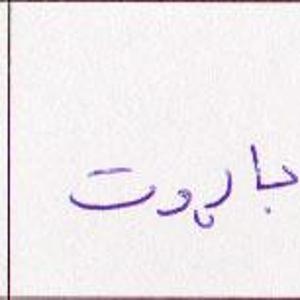 باړوت